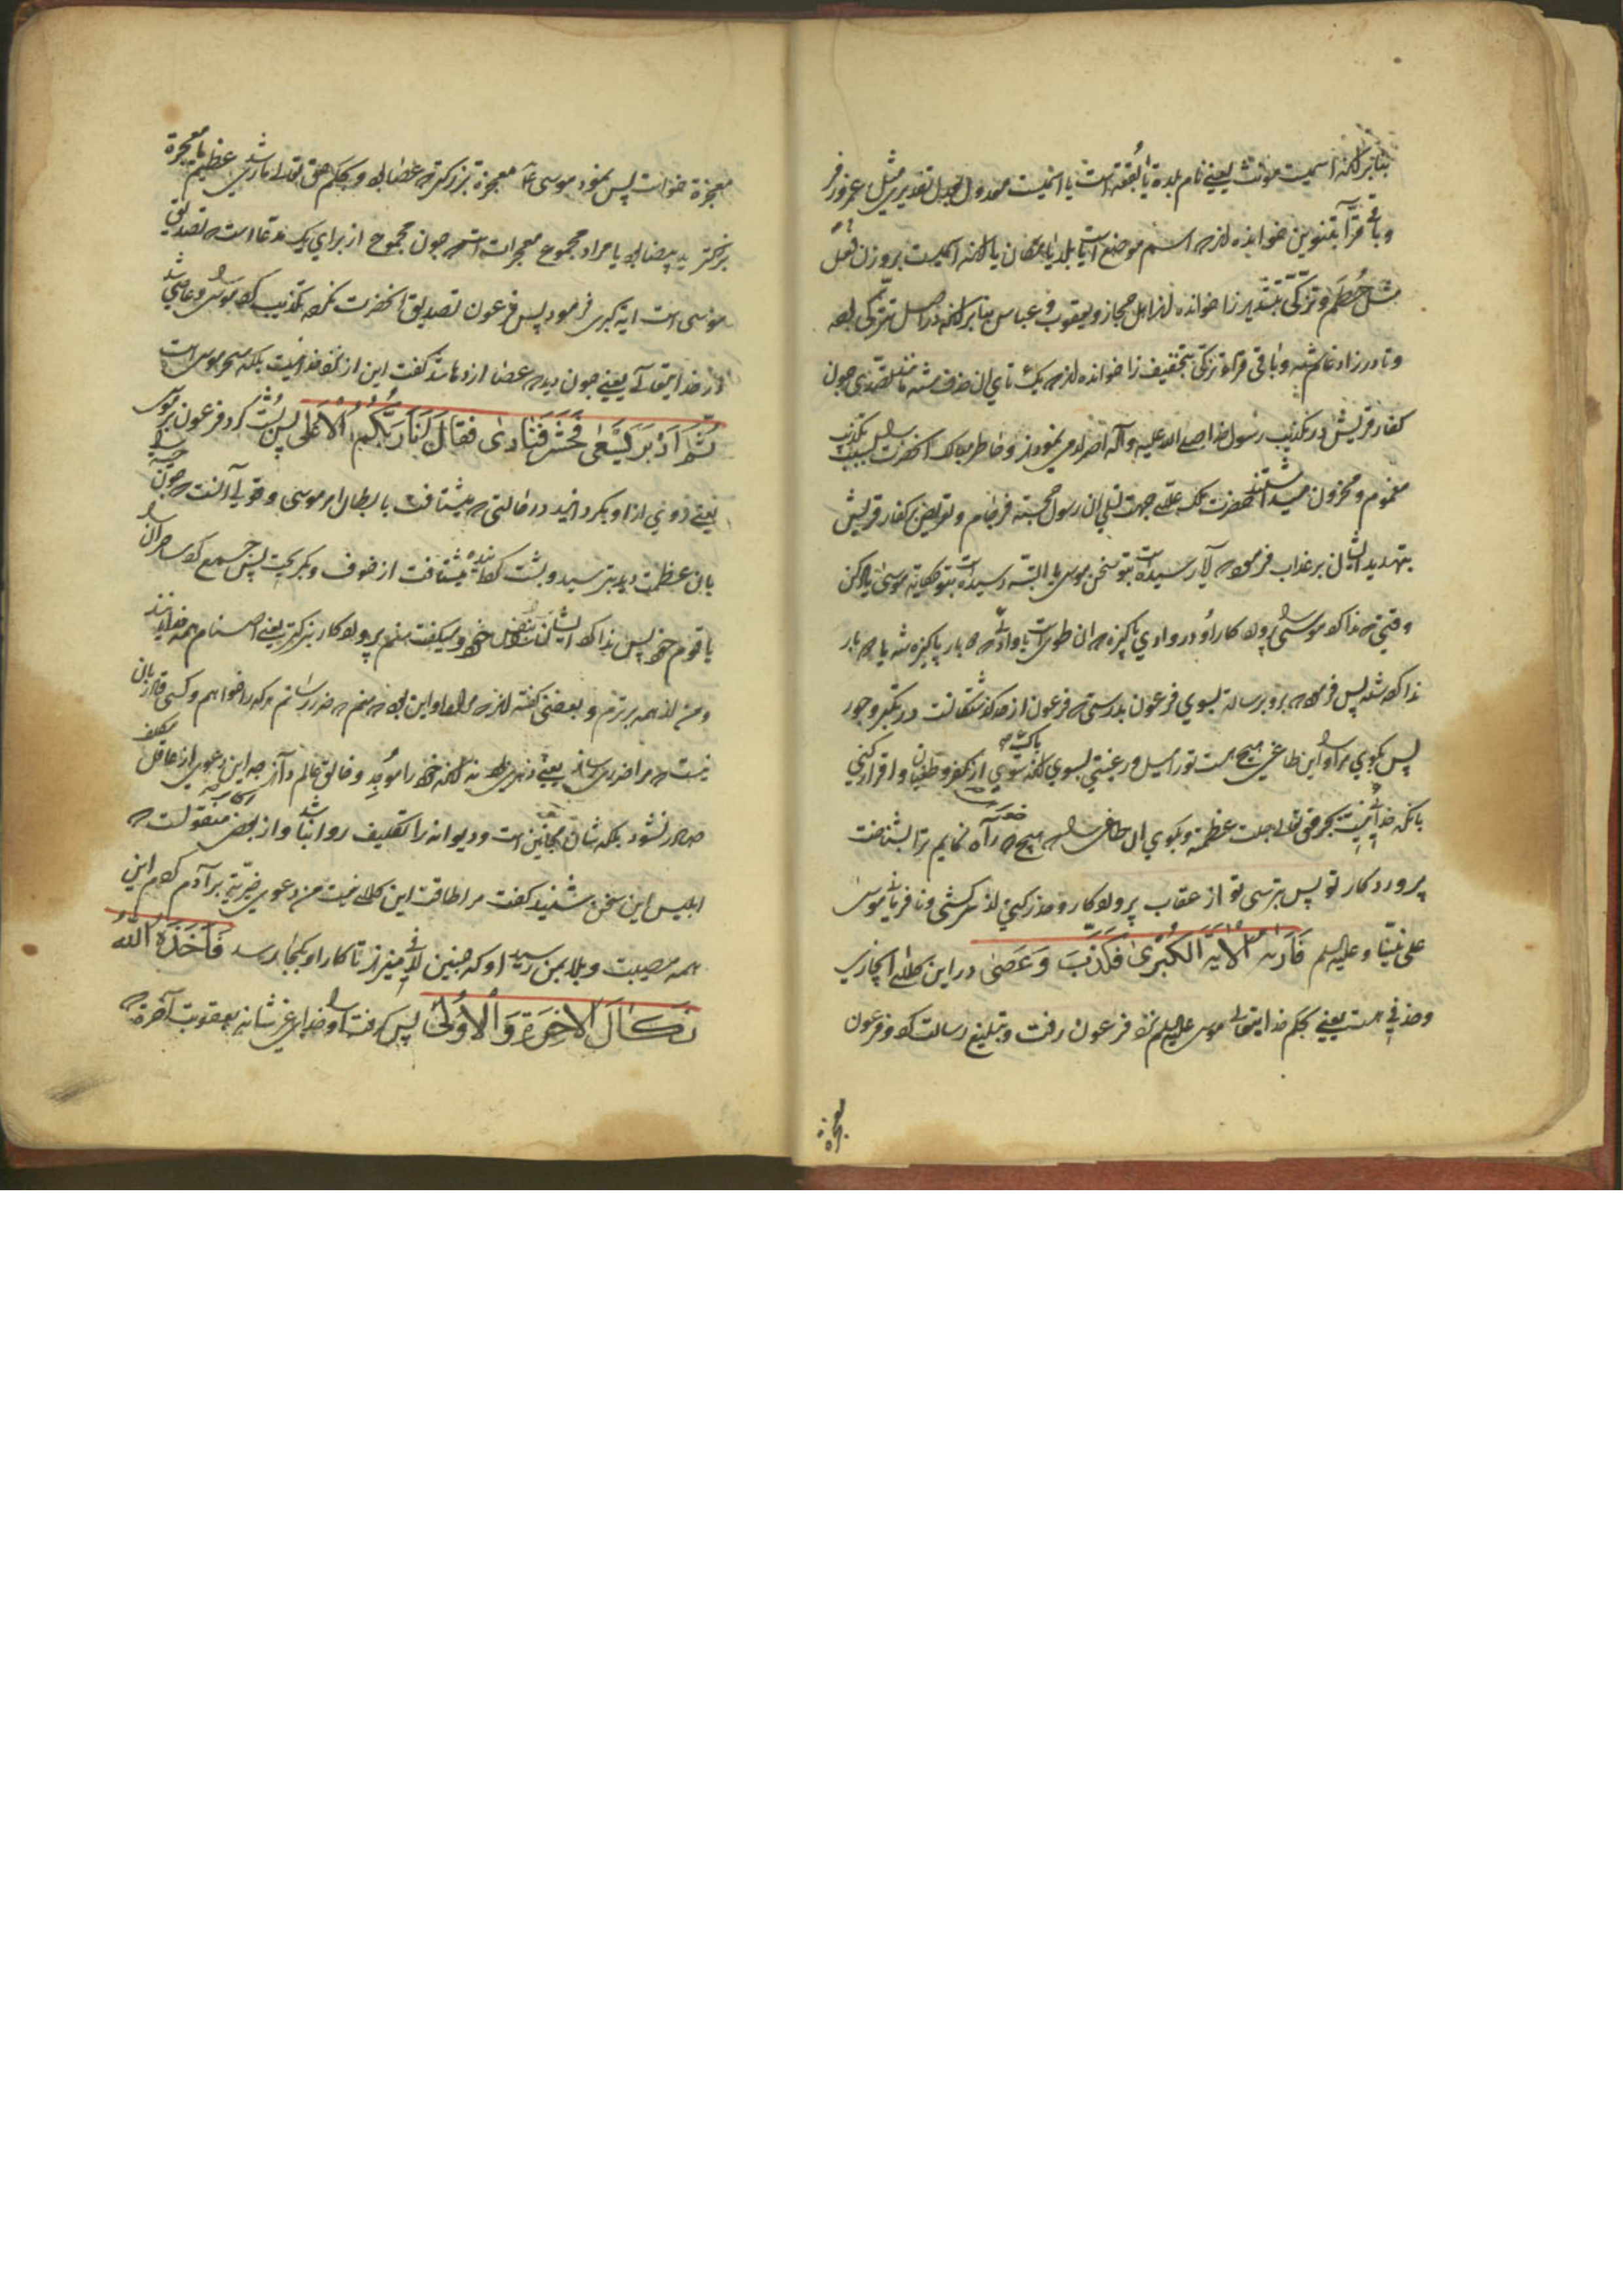 بنابر آنکه اسمیست مونث یعنی نام بلده یا بقعه است یا اسمیست معدول بعدل تقدیری مثل عمر و زفر
و باقی قرّا بتنوین خوانده اند که اسم موضع است یا بلد یا مکان یا آنکه اسمیست بر وزن فعل
مثل حُطَم و تزکّی بتشدید زا خوانده اند اهل حجاز و یعقوب و عباس بنابر آنکه در اصل تتزکی بوده
و تا در زا ادغام شده و باقی قراء تزکّی بتخفیف زا خوانده اند که یک تای آن حذف شده مانند تصدّی چون
کفار قریش در تکذیب رسول خدا صلی الله علیه وآله اصرار می نمودند و خاطر مبارک آنحضرت بسبب تکذیب
مغموم و محزون میداشتند حضرت ملک علام جهت تسلی آن رسول خجسته فرجام و تعریض کفار قریش
بتهدید ایشان بر عذاب فرموده که آیا رسیده است بتو سخن موسی یا البته رسیده است بتو حکایت موسی یاد کن
وقتی که ندا کرد موسی را پروردگار او در وادی پاکیزه که آن طوی است یا وادی که دو بار پاکیزه شده یا دو بار
ندا کرده شده پس فرموده برو برسالت بسوی فرعون بدرستی که فرعون از حد گذشته است در تکبر و جور
پس بگوی مر او را این طاغی هیچ هست تو را میل و رغبتی بسوی آنکه پاک شوی از کفر و طغیان و اقرار کنی
بآنکه خدائی نیست بجز حق تعالی جلت عظمته و بگوی ای طاغی هیچ راه نمایم ترا بشناخت
پروردگار تو پس بترسی تو از عقاب پروردگار و حذر کنی از سرکشی و نافرمانی موسی
علی نبیّنا و علیه السلم فَاَرٰیهُ الْاٰیَةَ الْکُبْرٰی فَکَذَّبَ وَعَصٰی در این کلام ایجازی
و حذفی هست یعنی بحکم خدایتعالی موسی علیه السلم نزد فرعون رفت و تبلیغ رسالت کرد و فرعون
معجزة
معجزة خواست پس نمود موسی ع معجزة بزرگتر که عصا بود و بحکم حق تعالی ماری شد عظیم یا معجزة
بزرگتر ید بیضا بود یا مراد مجموع معجزات است که چون مجموع از برای یک مدعا است که تصدیق
موسی است آیه کبری فرمود پس فرعون تصدیق آنحضرت نکرد تکذیب کرد موسی را و عاصی شد
در خدایتعالی یعنی چون دید که عصا اژدها شد گفت این از نزد خدا نیست بلکه سحر موسی است
ثُمَّ اَدْبَرَ یَسْعٰی فَحَشَرَ فَنَادٰی فَقَالَ اَنَا رَبُّکُمُ الْاَعْلٰی پس پشت کرد فرعون بر موسی
یعنی روی از او بگردانید در حالتی که میشتافت بابطال امر موسی و قولی آنست که چون
بآن عظمت دید بترسید و پشت گردانیده میشتافت از خوف و بگریخت پس جمع کرد ساحران را
با قوم خود پس ندا کرد ایشان را بنفس خود و گفت منم پروردگار بزرگتر یعنی اصنام همه خدایانند
و من از همه برترم و بعضی گفته اند که مراد او این بود که منم که ضرر رسانم هر که را خواهم و کسی قادر بآن
نیست که مرا ضرری رساند یعنی دهری بود نه آنکه خود را موجد و خالق عالم داند چه این دعوی از عاقل مکلف
صادر نشود بلکه شأن مجانین است و دیوانه را تکلیف روا نباشد و از بعض منقولست که
ابلیس این سخن شنید گفت مرا طاقت این کلام نیست من دعوی خیریت بر آدم کردم این
همه مصیبت و بلا بمن رسید او که چنین لاف میزند تا کار او بکجا رسد فَاَخَذَهُ اللّٰهُ
نَکَالَ الْاٰخِرَةِ وَالْاُولٰی پس گرفت او را خدای عز شانه بعقوبت آخرة که